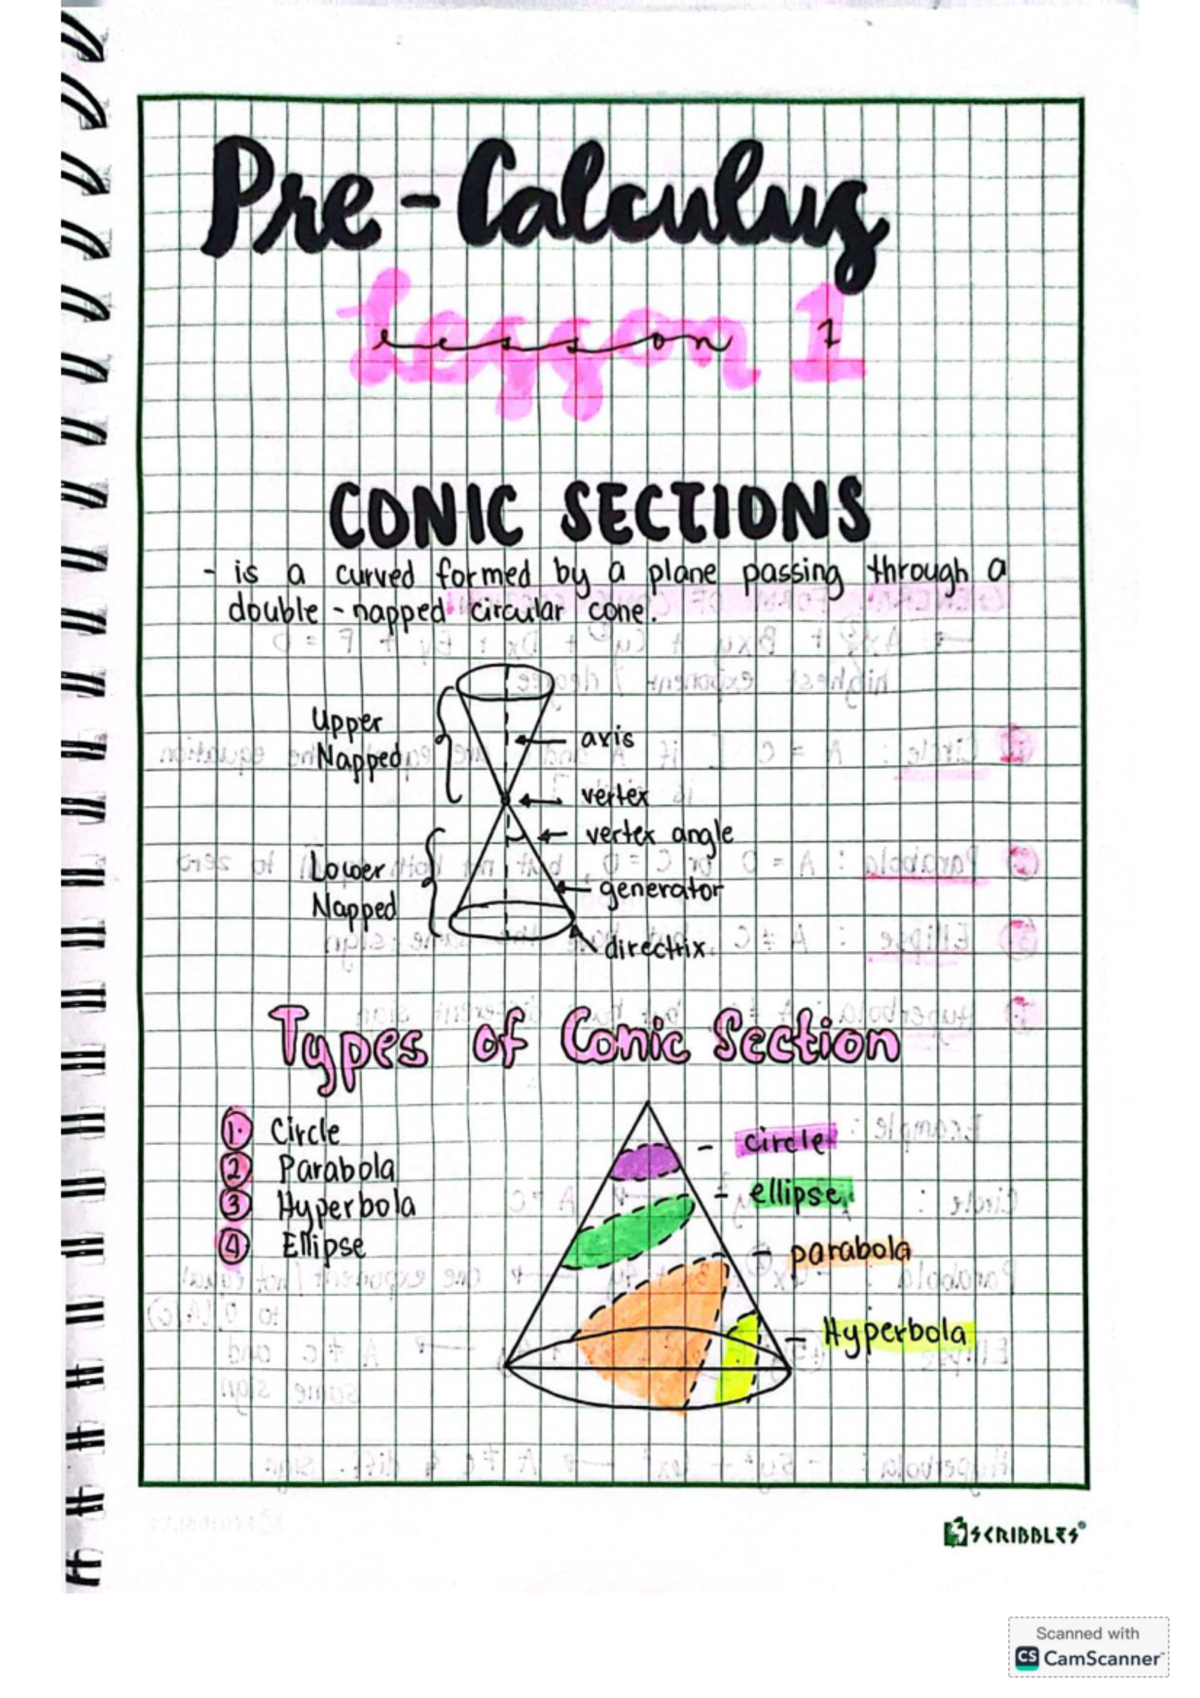 Pre-Calculus
Lesson 1
lesson 1
CONIC SECTIONS
- is a curved formed by a plane passing through a
double-napped circular cone.
Upper
Napped
axis
vertex
vertex angle
Lower
Napped
generator
directrix
Types of Conic Section
1. Circle
2 Parabola
3 Hyperbola
4 Ellipse
- circle
- ellipse
- parabola
- Hyperbola
SCRIBBLES®
Scanned with
CS CamScanner